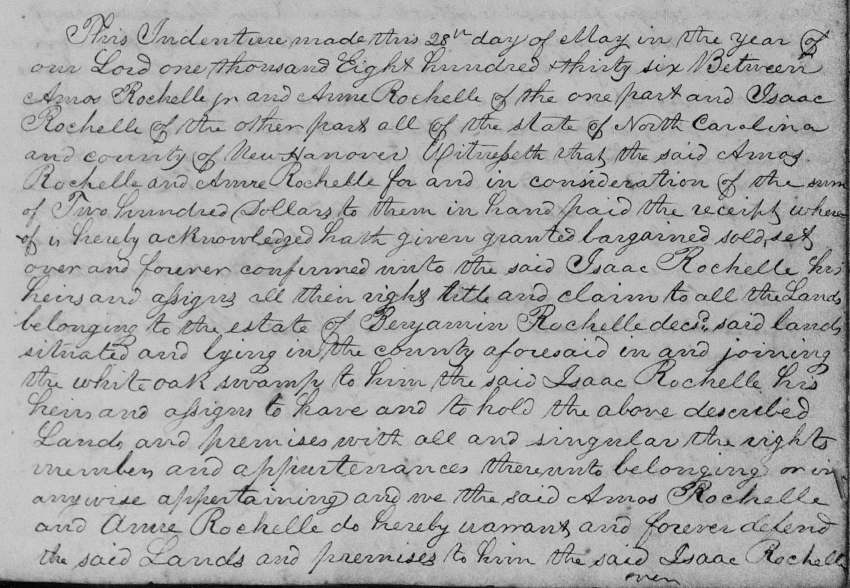 This Indenture made this 28th day of May in the year of
our Lord one thousand Eight hundred & thirty six Between
Amos Rochelle jr and Anne Rochelle of the one part and Isaac
Rochelle of the other part all of the state of North Carolina
and county of New Hanover Witnesseth that the said Amos
Rochelle and Anne Rochelle for and in consideration of the sum
of Two hundred Dollars to them in hand paid the receipt where=
of is hereby acknowledged hath given granted bargained sold, set
over and forever confirmed unto the said Isaac Rochelle his
heirs and assigns all their right title and claim to all the Lands
belonging to the estate of Benjamin Rochelle decsd. said lands
situated and lying in the county aforesaid in and joining
the white oak swamp to him the said Isaac Rochelle his
heirs and assigns to have and to hold the above described
Lands and premises with all and singular the rights
members and appurtenances thereunto belonging or in
anywise appertaining and we the said Amos Rochelle
and Anne Rochelle do hereby warrant and forever defend
the said Lands and premises to him the said Isaac Rochelle